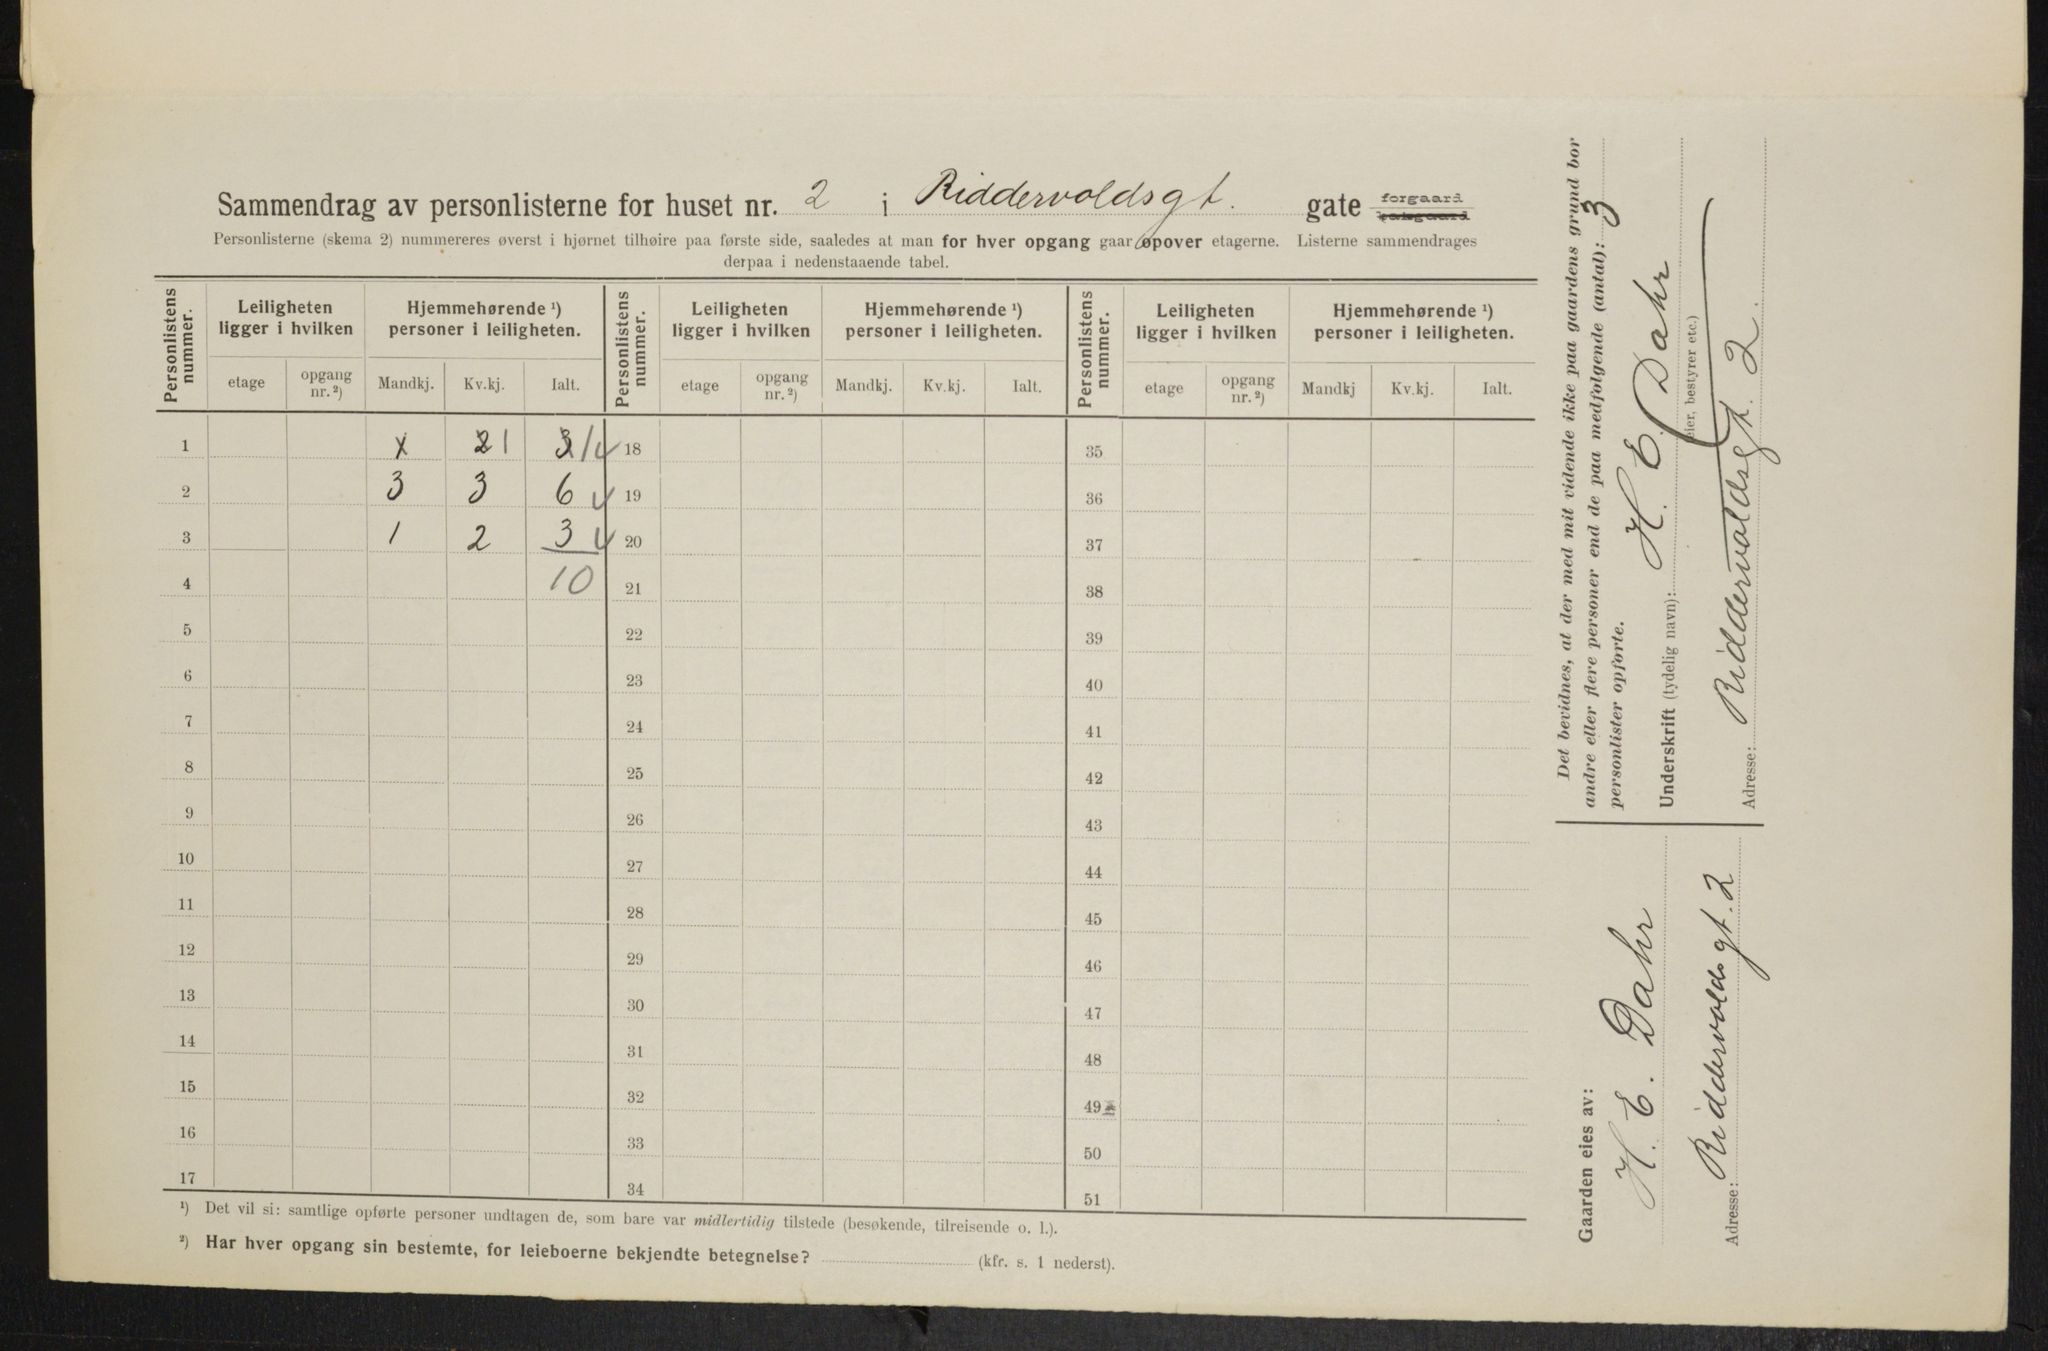 Sammendrag av personlisterne for huset nr. 2 i Riddervoldsgt. gate forgaard
Personlisterne (skema 2) nummereres øverst i hjørnet tilhøire paa første side, saaledes at man for hver opgang gaar opover etagerne. Listerne sammendrages
derpaa i nedenstaaende tabel.
Personlistens nummer. Leiligheten ligger i hvilken Hjemmehørende ¹) personer i leiligheten. Personlistens nummer. Leiligheten ligger i hvilken Hjemmehørende ¹) personer i leiligheten. Personlistens nummer. Leiligheten ligger i hvilken Hjemmehørende ¹) personer i leiligheten.
etage opgang nr. ²) Mandkj. Kv.kj. Ialt. etage opgang nr. ²) Mandkj. Kv.kj. Ialt. etage opgang nr. ²) Mandkj Kv.kj. Ialt.
1 x 2 1 3 1 18 35
2 3 3 6 19 36
3 1 2 3 20 37
4 10 21 38
5 22 39
6 23 40
7 24 41
8 25 42
9 26 43
10 27 44
11 28 45
12 29 46
13 30 47
14 31 48
15 32 49
16 33 50
17 34 51
¹) Det vil si: samtlige opførte personer undtagen de, som bare var midlertidig tilstede (besøkende, tilreisende o. l.).
²) Har hver opgang sin bestemte, for leieboerne bekjendte betegnelse? (kfr. s. 1 nederst).
Det bevidnes, at der med mit vidende ikke paa gaardens grund bor
andre eller flere personer end de paa medfølgende (antal): 3
personlister opførte.
Underskrift (tydelig navn): H. E. Dahr
(eier, bestyrer etc.)
Adresse: Riddervoldsgt. 2.
Gaarden eies av:
H. E. Dahr
Adresse: Riddervoldsgt. 2